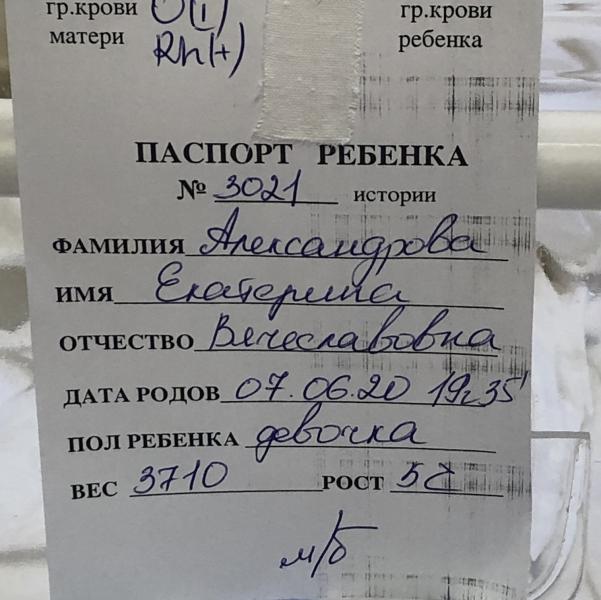 гр.крови O(I) гр.крови
матери Rh(+) ребенка
ПАСПОРТ РЕБЕНКА
№ 3021 истории
ФАМИЛИЯ Александрова
ИМЯ Екатерина
ОТЧЕСТВО Вячеславовна
ДАТА РОДОВ 07.06.20 19ч35'
ПОЛ РЕБЕНКА девочка
ВЕС 3710 РОСТ 52
м/б